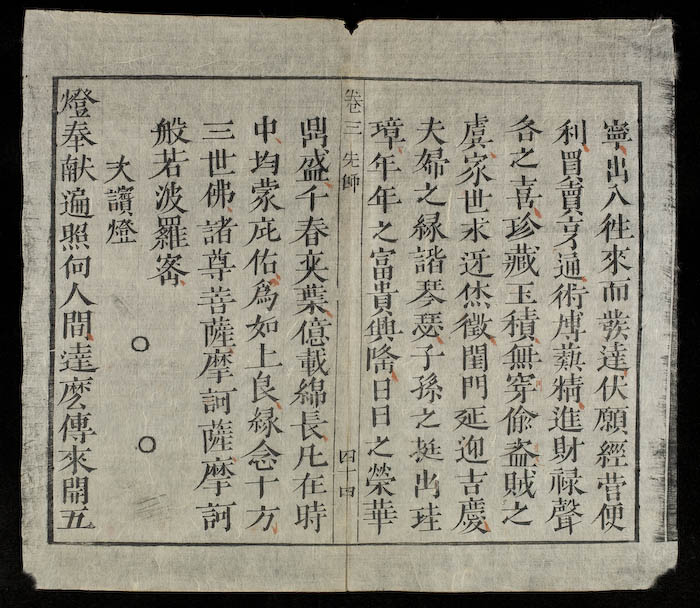 寧出入徃來而發達伏願經营便
利買賣亨通術博藝精進財禄聲
各之喜珍藏玉積無穿偷盗賊之
虞家世永迓休徵閨門延迎吉慶
夫婦之緣諧琴瑟子孫之挺出珪
璋年年之富貴興隆日日之榮華
卷三 先師 四十四
昌盛千春奕葉億載綿長凡在時
中均蒙庇佑爲如上良緣念十方
三世佛諸尊菩薩摩訶薩摩訶
般若波羅密
大讚燈
燈奉献遍照向人間達麽傳來開五